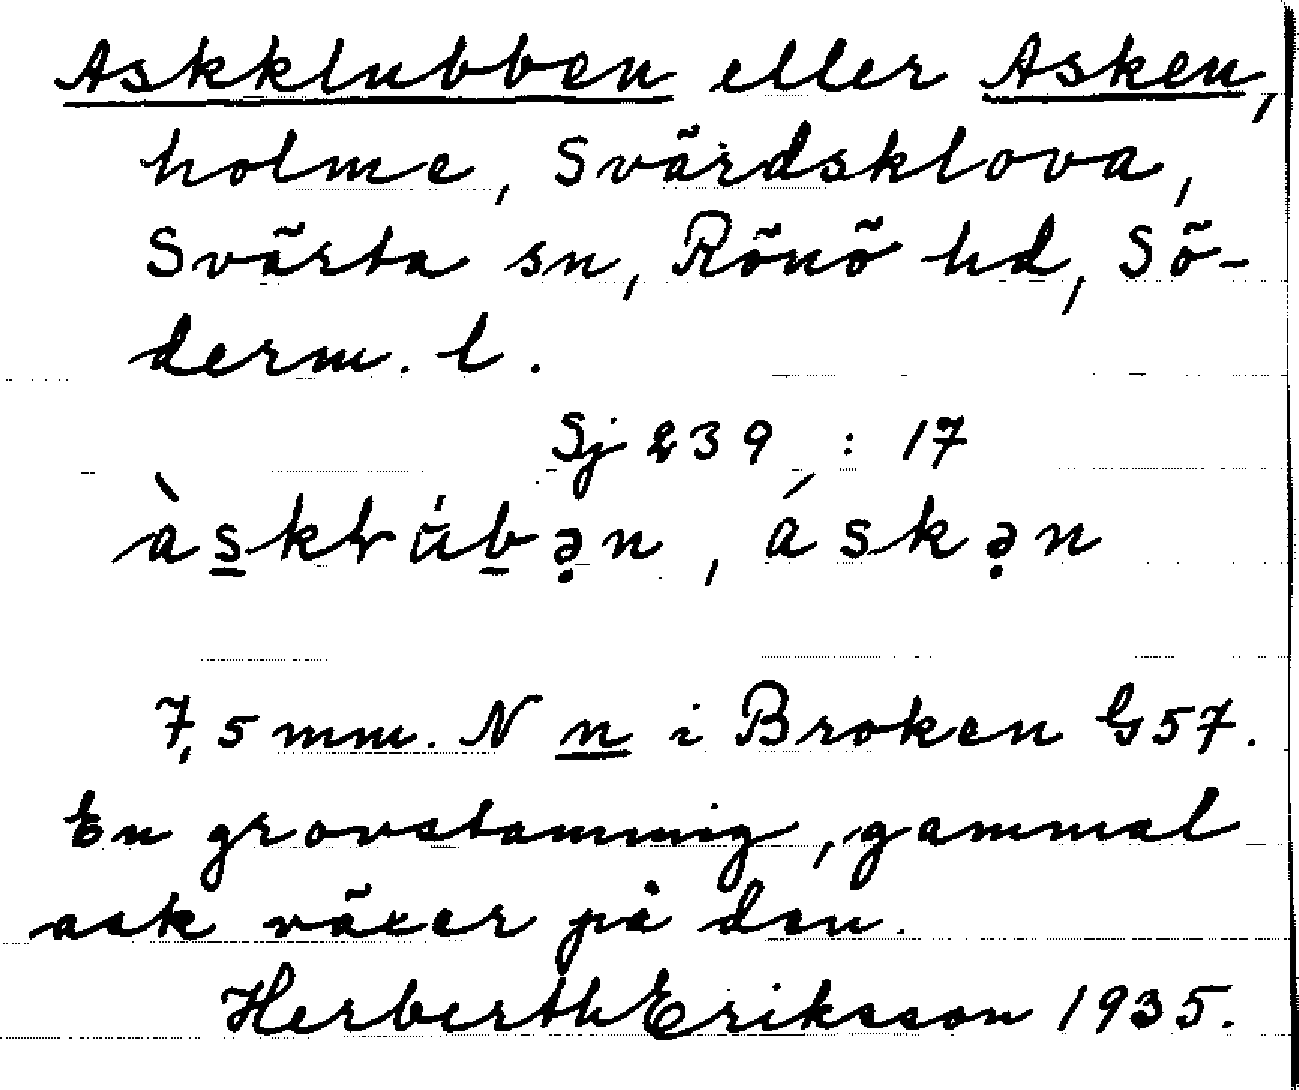 Askklubben eller Asken,
holme, Svärdsklova,
Svärta sn, Rönö hd, Sö-
derm. l.
Sj 239 : 17
àskłu̇bə̣n, áskə̣n
7,5 mm. N n i Broken G57.
En grovstammig, gammal
ask växer på den.
Herberth Eriksson 1935.